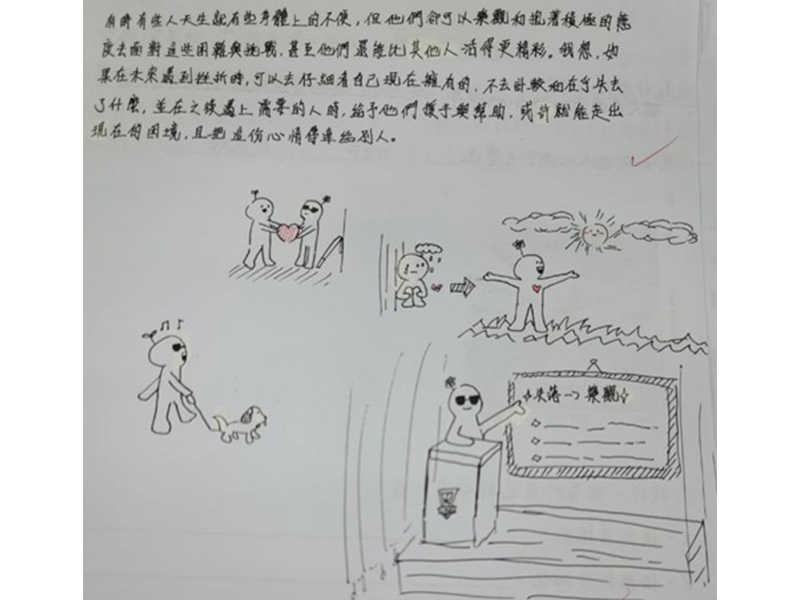 有時有些人天生就有些身體上的不便，但他們卻可以樂觀和抱著積極的態
度去面對這些困難與挑戰，甚至他們還能比其他人活得更精彩。我想，如
果在未來遇到挫折時，可以去仔細看自己現在擁有的，不去計較和在乎失去
了什麼，並在之後遇上需要的人時，給予他們援手與幫助，或許就能走出
現在的困境，且把這份心情傳達給別人。
失落→樂觀